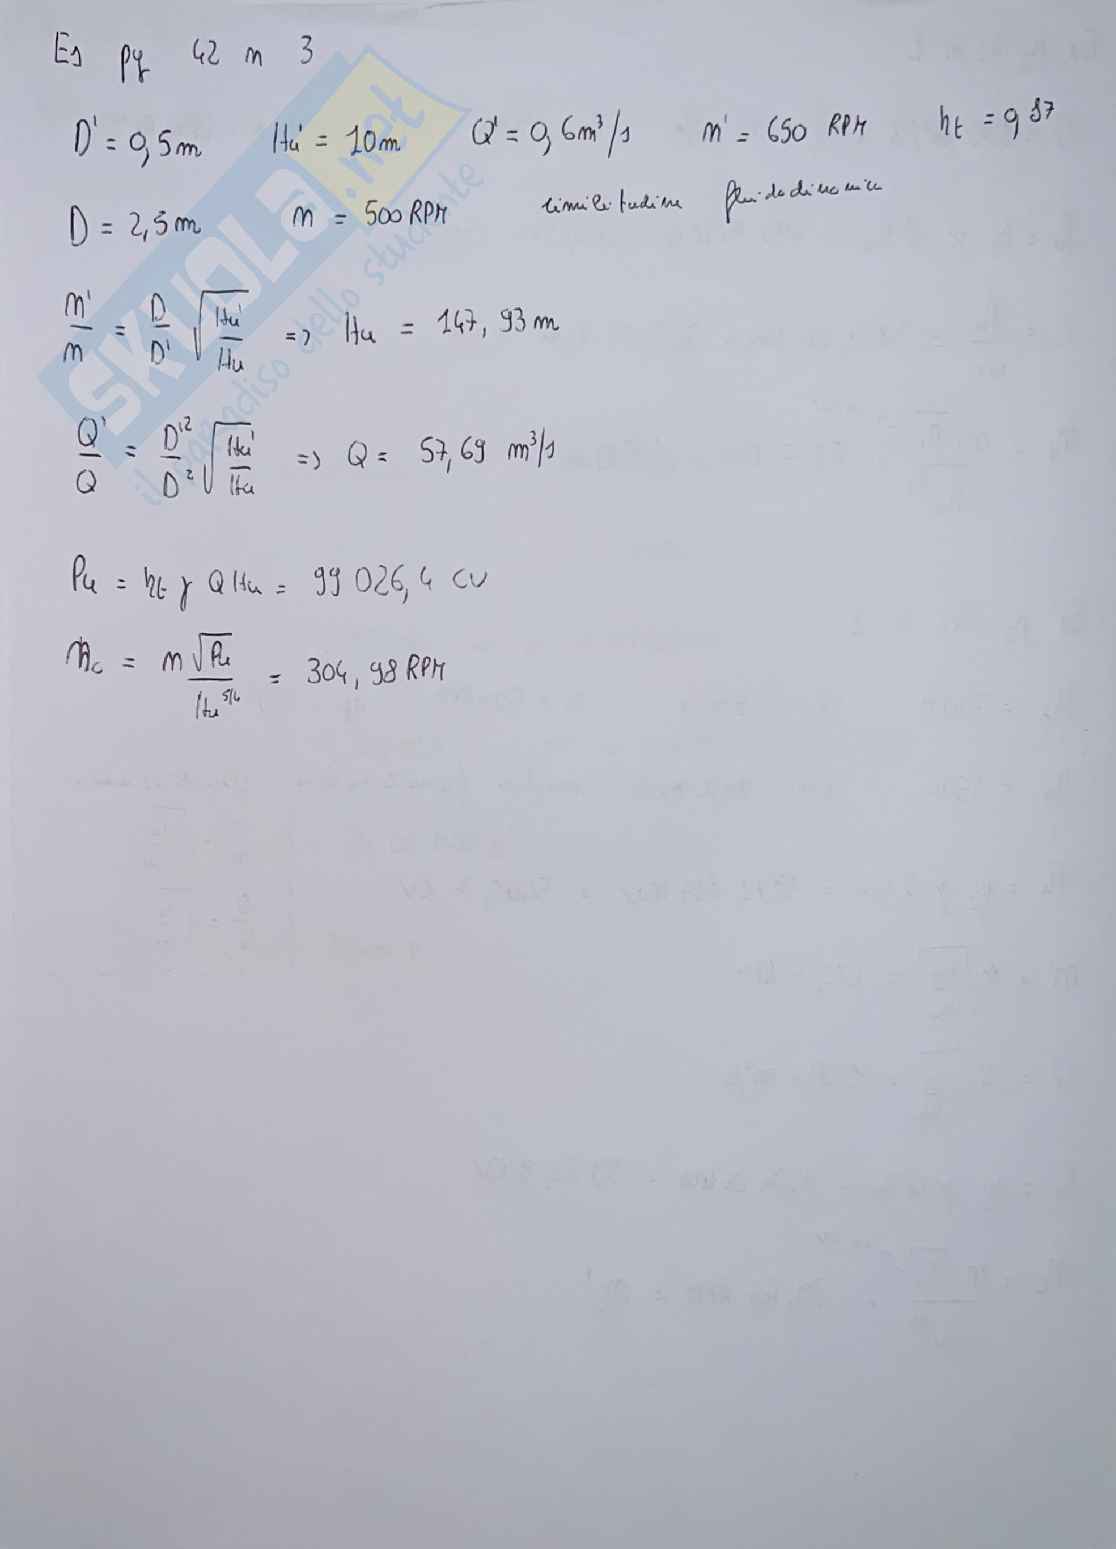 Es pg 42 n 3
D' = 0,5m Hu' = 10m Q' = 0,6m³/s n' = 650 RPM ηt = 0,87
D = 2,5m n = 500 RPM similitudine fluidodinamica
n'/n = D/D' √(Hu'/Hu) => Hu = 147,93 m
Q'/Q = D'²/D² √(Hu'/Hu) => Q = 57,69 m³/s
Pu = ηt γ Q Hu = 99 026,4 CV
nc = n √Pu / Hu^5/4 = 304,98 RPM
SKUOLA.net
il paradiso dello studente